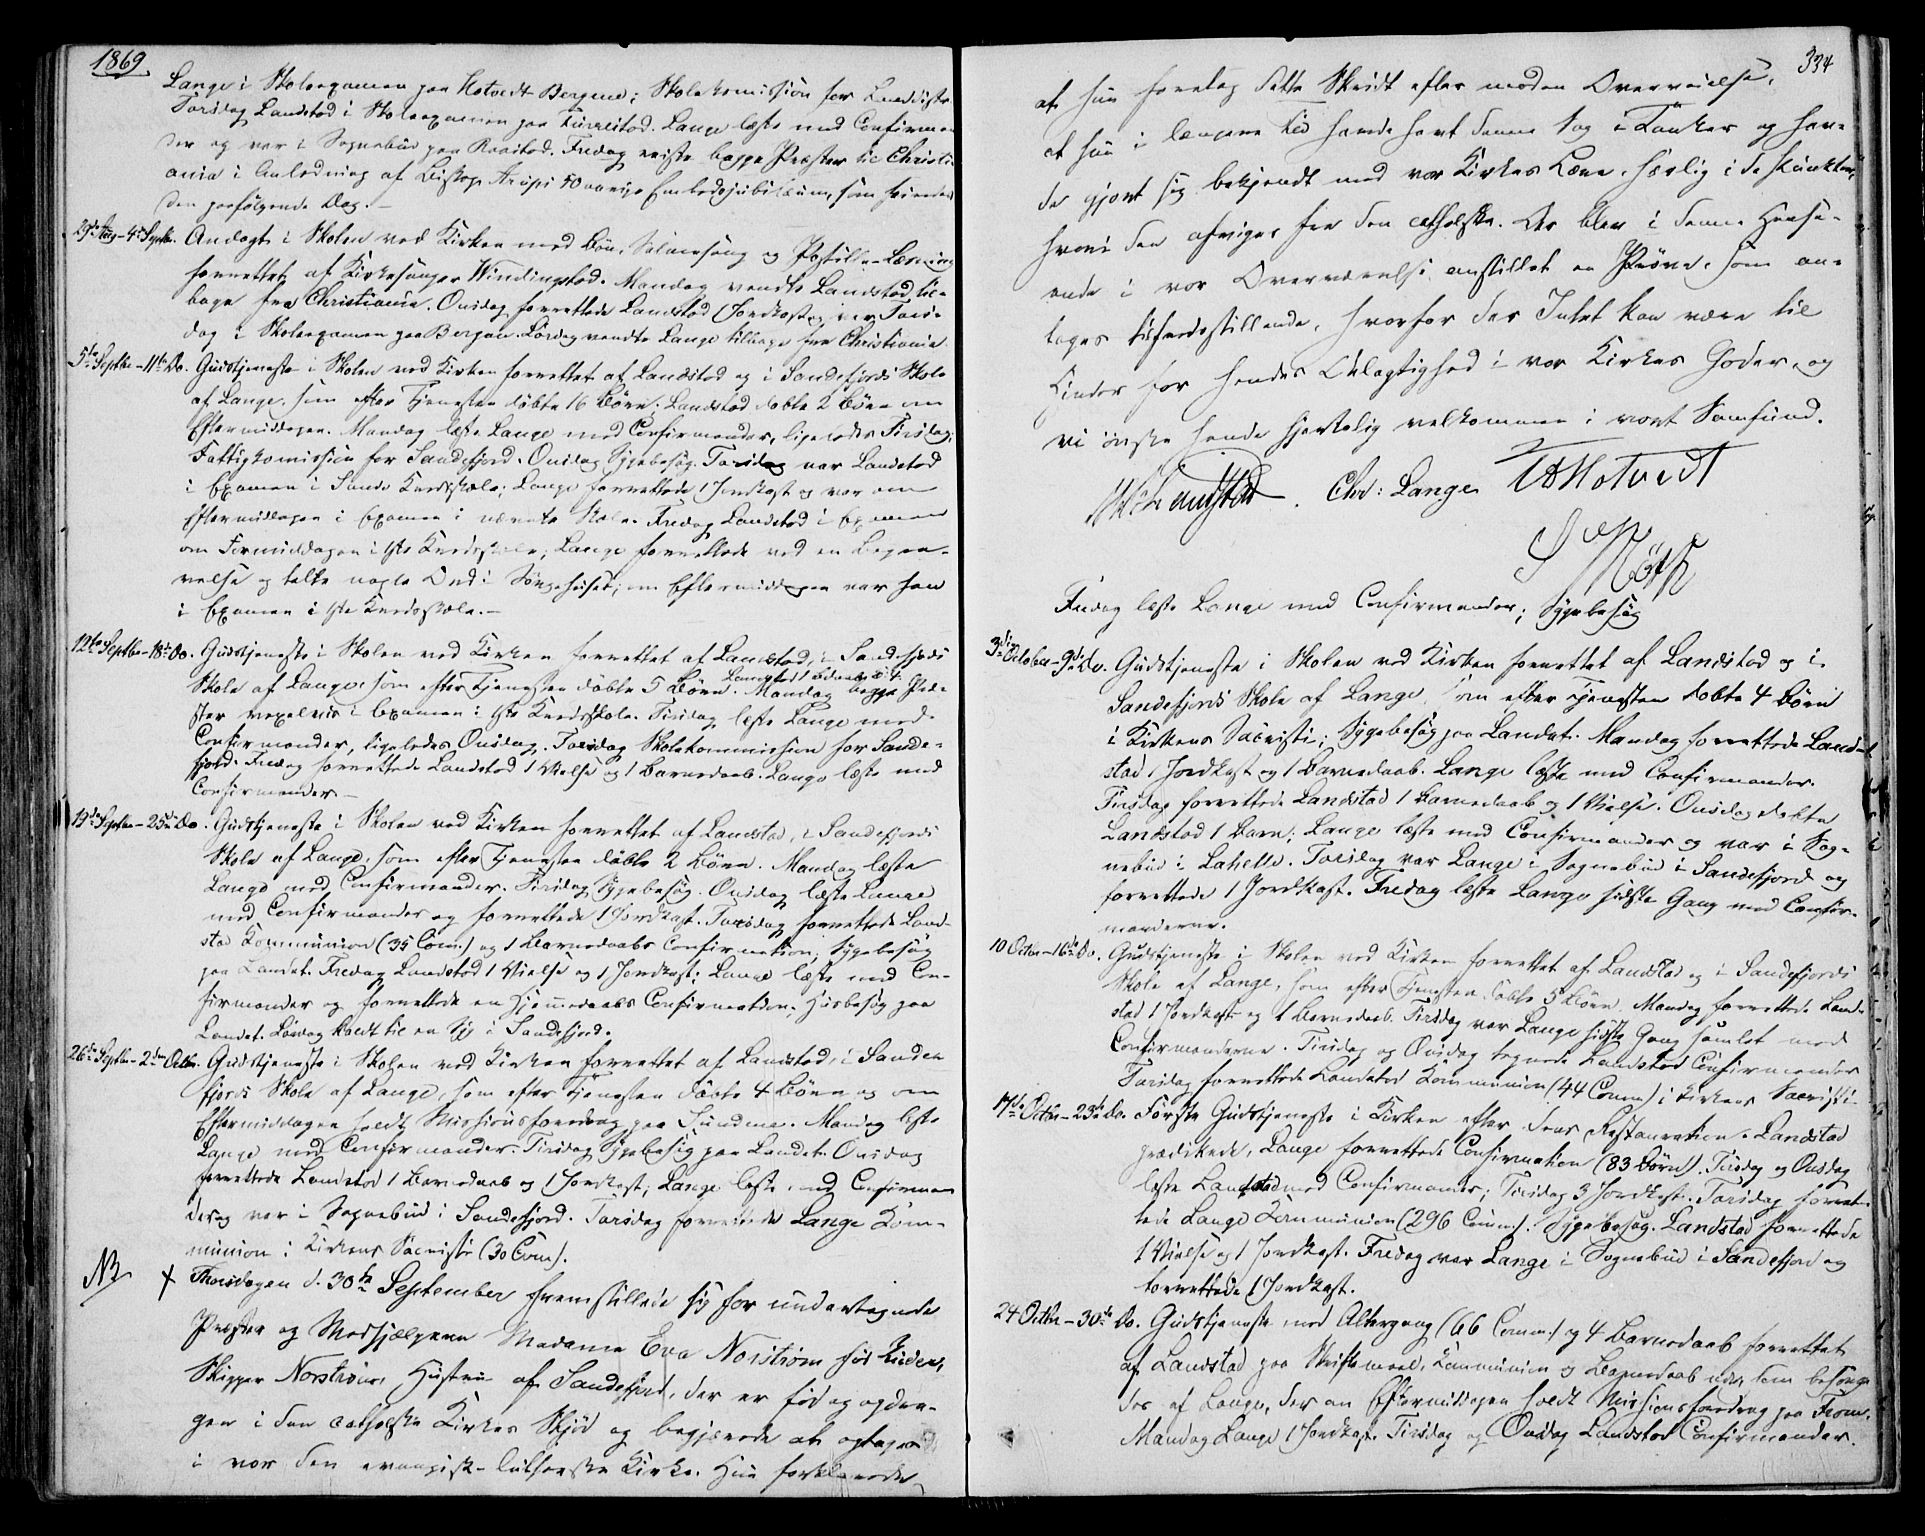 1869
Lange i Skoleexamen paa Hotvedt Bergene; Skolekomission for Landdistr.
Torsdag Landstad i Skoleexamen paa Furustad. Lange læste med Confirman
der og var i Sognebud paa Raastad. Fredag reiste begge Præster til Christi
ania i Anledning af Biskop Arups 50 aarige Embedsjubilæum, som feiredes
den paafølgende Dag.-
29de Aug-4de Septbr. Andagt i Skolen ved Kirken med Bøn, Salmesang og Postille-Læsning
forrettet af Kirkesanger Windingstad. Mandag vendte Landstad til-
bage fra Christiania. Onsdag forrettede Landstad 1 Jordkast og var Tors-
dag i Skoleexamen paa Bergan. Lørdag vendte Lange tilbage fra Christiania
5te Septbr-11te Do. Gudstjeneste i Skolen ved Kirken forrettet af Landstad og i Sandefjords Skole
af Lange, som efter Tjenesten døbte 16 Børn; Landstad døbte 2 Børn om
Eftermiddagen. Mandag læste Lange med Confirmander, ligeledes Tirsdag;
Fattigkomission for Sandefjord. Onsdag Sygebesøg. Torsdag var Landstad
i Examen i Sande Kredsskole; Lange forrettede 1 Jordkast og var om
Eftermiddagen i Examen i nævnte Skole. Fredag Landstad i Examen
om Formiddagen i 1ste Kredsskole; Lange forrettede ved en Begra-
velse og talte nogle Ord i Sørgehuset; om Eftermiddagen var han
i Examen i 1ste Kredsskole.-
12te Septbr-18de Do. Gudstjeneste i Skolen ved Kirken forrettet af Landstad, i Sandefjords
Skole af Lange, som efter Tjenesten døbte 5 Børn. Landstad 1 Mandag begge Præ-
ster vexelvis i Examen i 1ste Kredsskole. Tirsdag læste Lange med
Confirmander, ligeledes Onsdag. Torsdag Skolekommission for Sande-
fjord. Fredag forrettede Landstad 1 Vielse og 1 Barnedaab. Lange læste med
Confirmander.-
19de Septbr-25de Do. Gudstjeneste i Skolen ved Kirken forrettet af Landstad, i Sandefjords
Skole af Lange, som efter Tjenesten døbte 2 Børn. Mandag læste
Lange med Confirmander. Tirsdag Sygebesøg. Onsdag læste Lange
med Confirmander og forrettede 1 Jordkast. Torsdag forrettede Land-
stad Kommunion (35 Comm.) og 1 Barnedaabs Confirmation; Sygebesøg
paa Landet. Fredag Landstad 1 Vielse og 1 Jordkast; Lange læste med Con-
firmander og forrettede en Hjemmedaabs Confirmation; Husbesøg paa
Landet. Lørdag kaldt til en Syg i Sandefjord.
26de Septbr-2den Octbr. Gudstjeneste i Skolen ved Kirken forrettet af Landstad, i Sande
fjords Skole af Lange, som efter Tjenesten døbte 4 Børn og om
Eftermiddagen holdt Missionsforedrag paa Sundene. Mandag læste
Lange med Confirmander. Tirsdag Sygebesøg paa Landet. Onsdag
forrettede Landstad 1 Barnedaab og 1 Jordkast; Lange læste med Confirman
der og var i Sognebud i Sandefjord. Torsdag forrettede Lange Kom-
munion i Kirkens Sacristi (30 Com).
NB + Thorsdagen d. 30te September fremstillede sig for undertegnede
Præster og Medhjælpere Madame Eva Norstrøm født
Skipper Norstrøms Hustru af Sandefjord, der er født og opdra-
gen i den catholske Kirkes Skjød og begjærede at optages
i vor den evangelisk-lutherske Kirke. Hun forklarede,
334
at hun foretog dette Skridt efter moden Overveielse,
at hun i længere Tid havde havt denne Sag i Tanker og hav-
de gjort sig bekjendt med vor Kirkes Lære, særlig i de Punkter,
hvori den afviger fra den catholske. Der blev i denne Hense-
ende i vor Overværelse anstillet en Prøve, som an-
toges tilfredsstillende, hvorfor der Intet kan være til
Hinder for hendes Delagtighed i vor Kirkes Goder, og
vi ønske hende hjertelig velkommen i vort Samfund.
Landstad. Chr: Lange Hotvedt
Fredag læste Lange med Confirmander; Sygebesøg
3die October-9de Do. Gudstjeneste i Skolen ved Kirken forrettet af Landstad og i
Sandefjords Skole af Lange, som efter Tjenesten døbte 4 Børn
i Kirkens Sacristi; Sygebesøg paa Landet. Mandag forrettede Land-
stad 1 Jordkast og 1 Barnedaab. Lange læste med Confirmander.
Tirsdag forrettede Landstad 1 Barnedaab og 1 Vielse. Onsdag døbte
Landstad 1 Barn; Lange læste med Confirmander og var i Sog-
nebud i Lahelle. Torsdag var Lange i Sognebud i Sandefjord og
forrettede 1 Jordkast. Fredag læste Lange sidste Gang med Confir-
manderne.
10 Octbr-16de Do. Gudstjeneste i Skolen ved Kirken forrettet af Landstad og i Sandefjords
Skole af Lange, som efter Tjenesten døbte 5 Børn. Mandag forrettede Land-
stad 1 Jordkast og 1 Barnedaab. Tirsdag var Lange sidste Gang samlet med
Confirmanderne. Tirsdag og Onsdag tegnede Landstad Confirmander
Torsdag forrettede Landstad Kommunion (44 Comm) i Kirkens Sacristi.
17de Octbr-23de Do. Første Gudstjeneste i Kirken efter dens Restauration. Landstad
prædikede, Lange forrettede Confirmation (83 Børn). Tirsdag og Onsdag
læste Landstad med Confirmander; Tirsdag 3 Jordkast. Torsdag forret-
tede Lange Kommunion (296 Comm). Sygebesøg. Landstad forrettede
1 Vielse og 1 Jordkast. Fredag var Lange i Sognebud i Sandefjord og
forrettede 1 Jordkast.
24 Octbr-30te Do. Gudstjeneste med Altergang (66 Comm.) og 4 Barnedaab forrettet
af Landstad paa Skriftemaal, Kommunion og Barnedaab nær, som besørge
des af Lange, der om Eftermiddagen holdt Missionsforedrag paa Fram.
Mandag Lange 1 Jordkast. Tirsdag og Onsdag Landstad Confirmander.